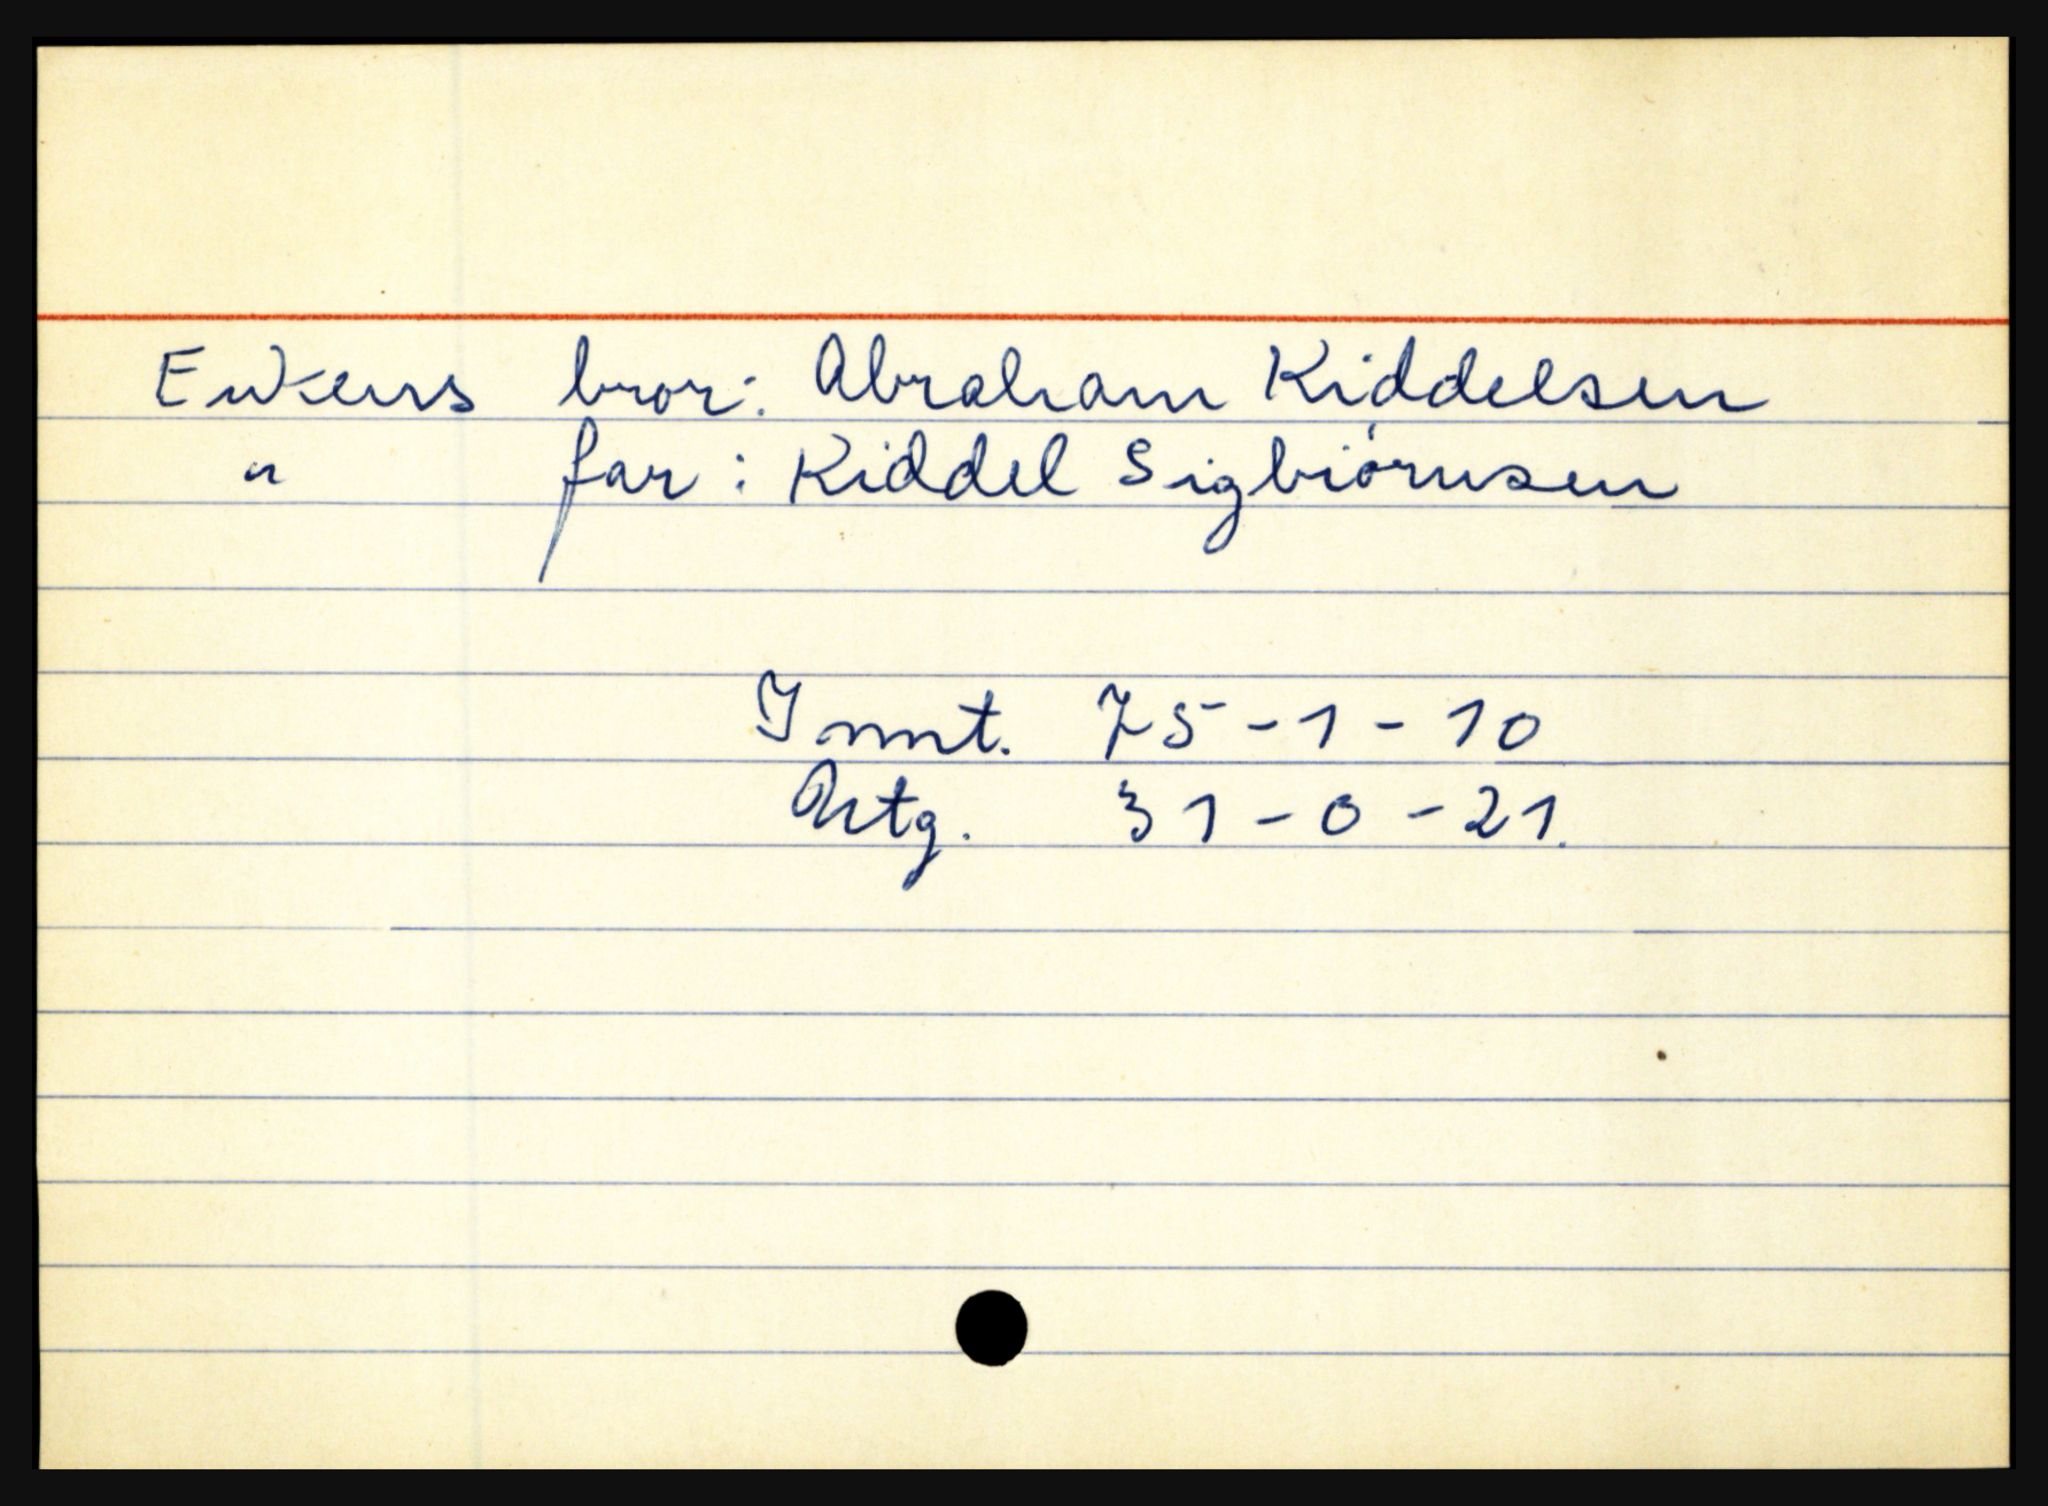 Enkens bror: Abraham Kiddelsen
" far: Kiddel Sigbiörnsen
Innt. 75-1-10
Utg. 31-0-21.